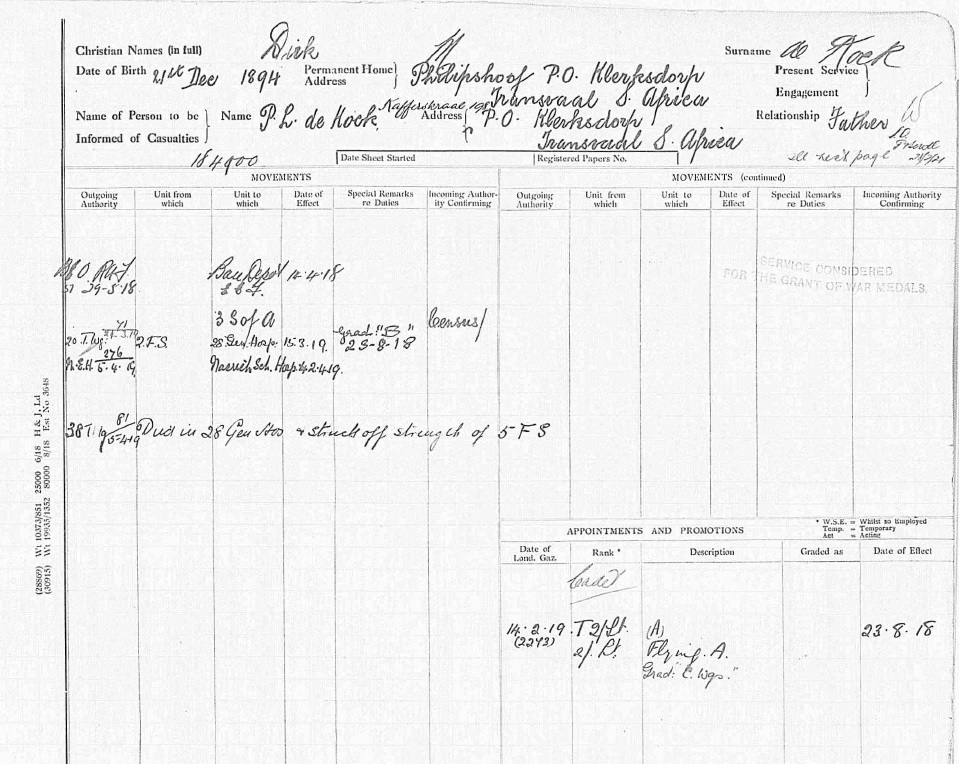 Christian Names (in full) Dirk Surname de Kock
Date of Birth 21st Dec 1894 Permanent Home Address Philipshoof P.O. Klerksdorp Present Service
Transvaal S. Africa Engagement
Name of Person to be Informed of Casualties Name P. L. de Kock Address P.O. Klerksdorp Relationship Father
Transvaal S. Africa
184900 Date Sheet Started Registered Papers No. see next page
MOVEMENTS MOVEMENTS (continued)
Outgoing Authority Unit from which Unit to which Date of Effect Special Remarks re Duties Incoming Authority Confirming Outgoing Authority Unit from which Unit to which Date of Effect Special Remarks re Duties Incoming Authority Confirming
SERVICE CONSIDERED
FOR THE GRANT OF WAR MEDALS.
29-5-18 Base Depot 12.4.18
3 S of A Census
2.F.S. 28 Gen. Hosp. 15.3.19. Grad. "B" 23-8-18
5.4.19
Died in 28 Gen Hos & struck off strength of 5 F S
* W.S.E. = Whilst so Employed
Temp. = Temporary
Act = Acting
APPOINTMENTS AND PROMOTIONS
Date of Lond. Gaz. Rank * Description Graded as Date of Effect
Cadet
14.2.19. T 2/Lt. (A) 23.8.18
(2243) 2/Lt. Flying. A.
Grad: "C. Wgs."
(28869) Wt 10373/851 25000 6/18 H & J, Ld
(30915) Wt 19935/1352 80000 8/18 Est No 3648